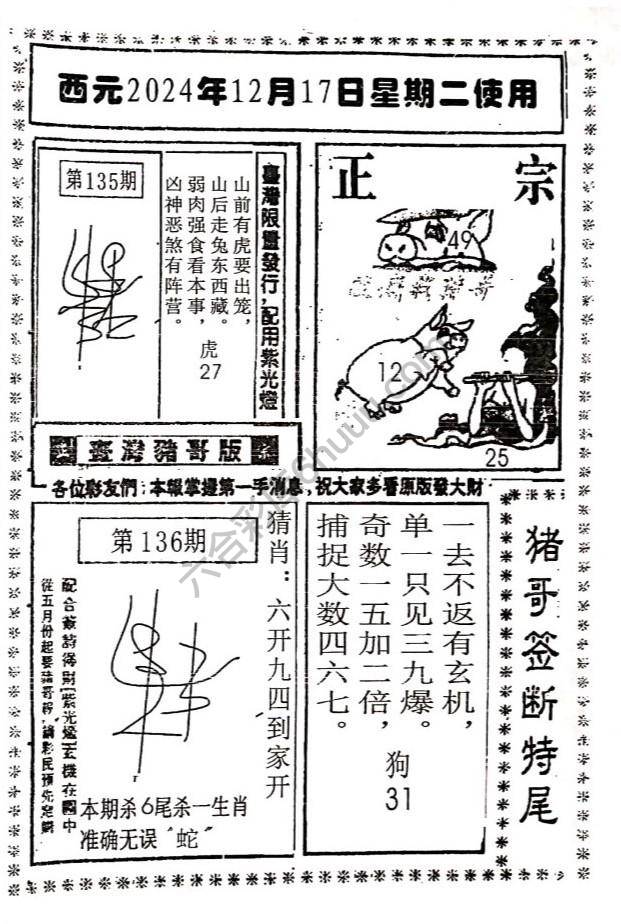 西元2024年12月17日星期二使用
第135期
山前有虎要出笼，
山后走兔东西藏。
弱肉强食看本事，
凶神恶煞有阵营。
虎
27
臺灣限量發行，配用紫光燈
正宗
49
12
25
臺灣豬哥版
各位彩友們：本報掌握第一手消息，祝大家多看原版發大財
第136期
猜肖：六开九四到家开
本期杀6尾杀一生肖
准确无误“蛇”
一去不返有玄机，
单一只见三九爆。
奇数一五加二倍，
捕捉大数四六七。
狗
31
猪哥签断特尾